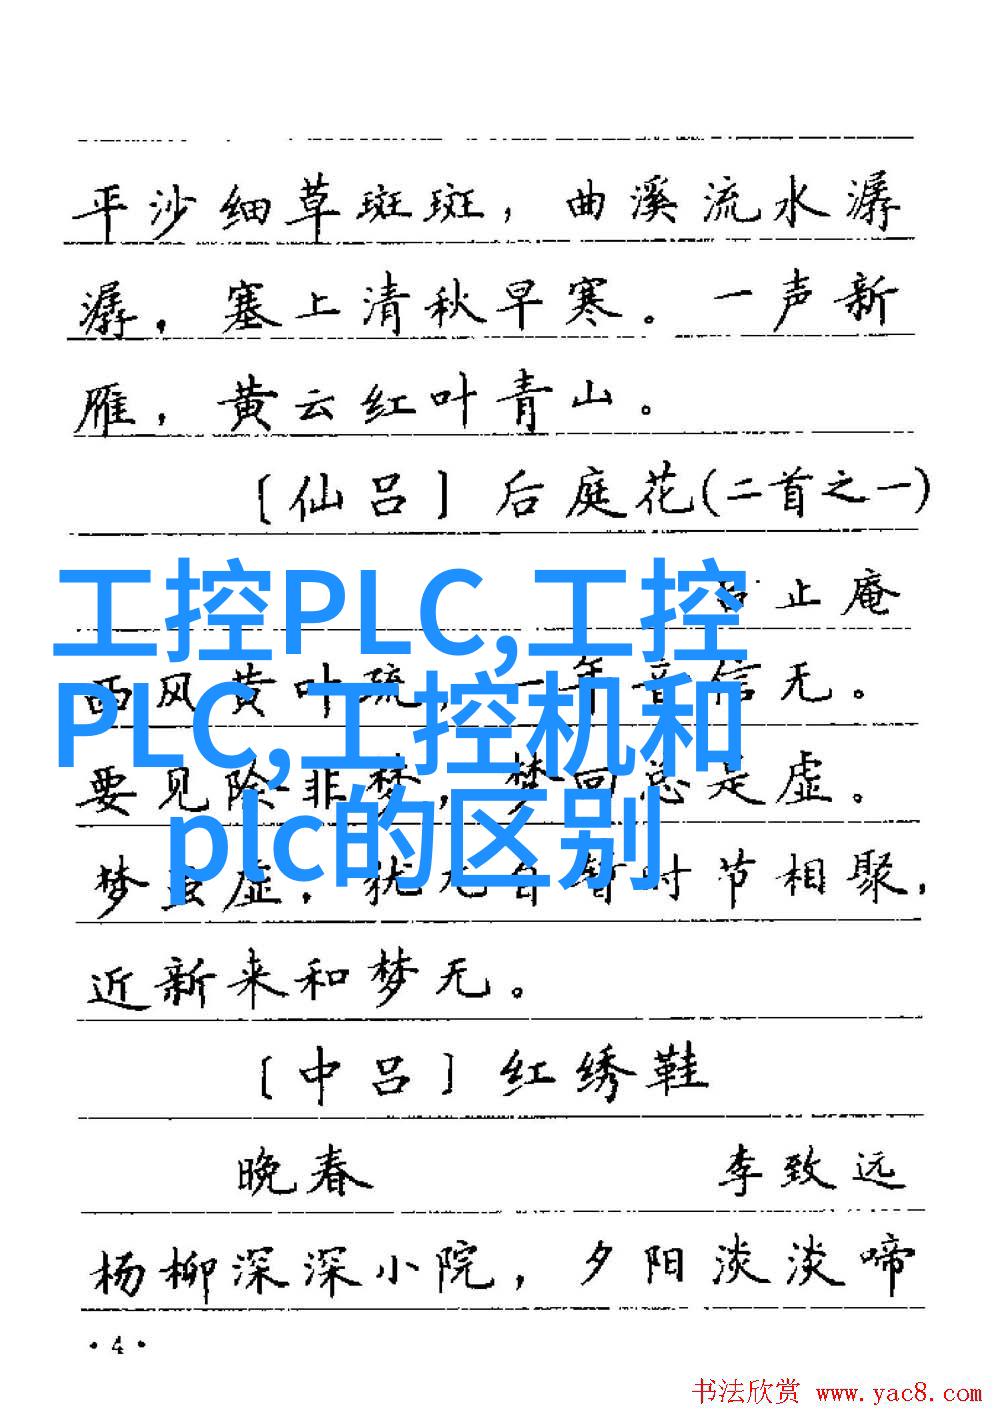 平沙细草斑斑，曲溪流水潺
潺，塞上清秋早寒。一声新
雁，黄云红叶青山。
［仙吕］后庭花(二首之一)
止庵
西风黄叶疏，一年音信无。
要见除非梦，梦回总是虚。
梦虽虚，犹兀自暂时节相聚，
近新来和梦无。
［中吕］红绣鞋
晚春 李致远
杨柳深深小院，夕阳淡淡啼
·4·
工控PLC,工控
PLC,工控机和
plc的区别
书法欣赏 www.yac8.com